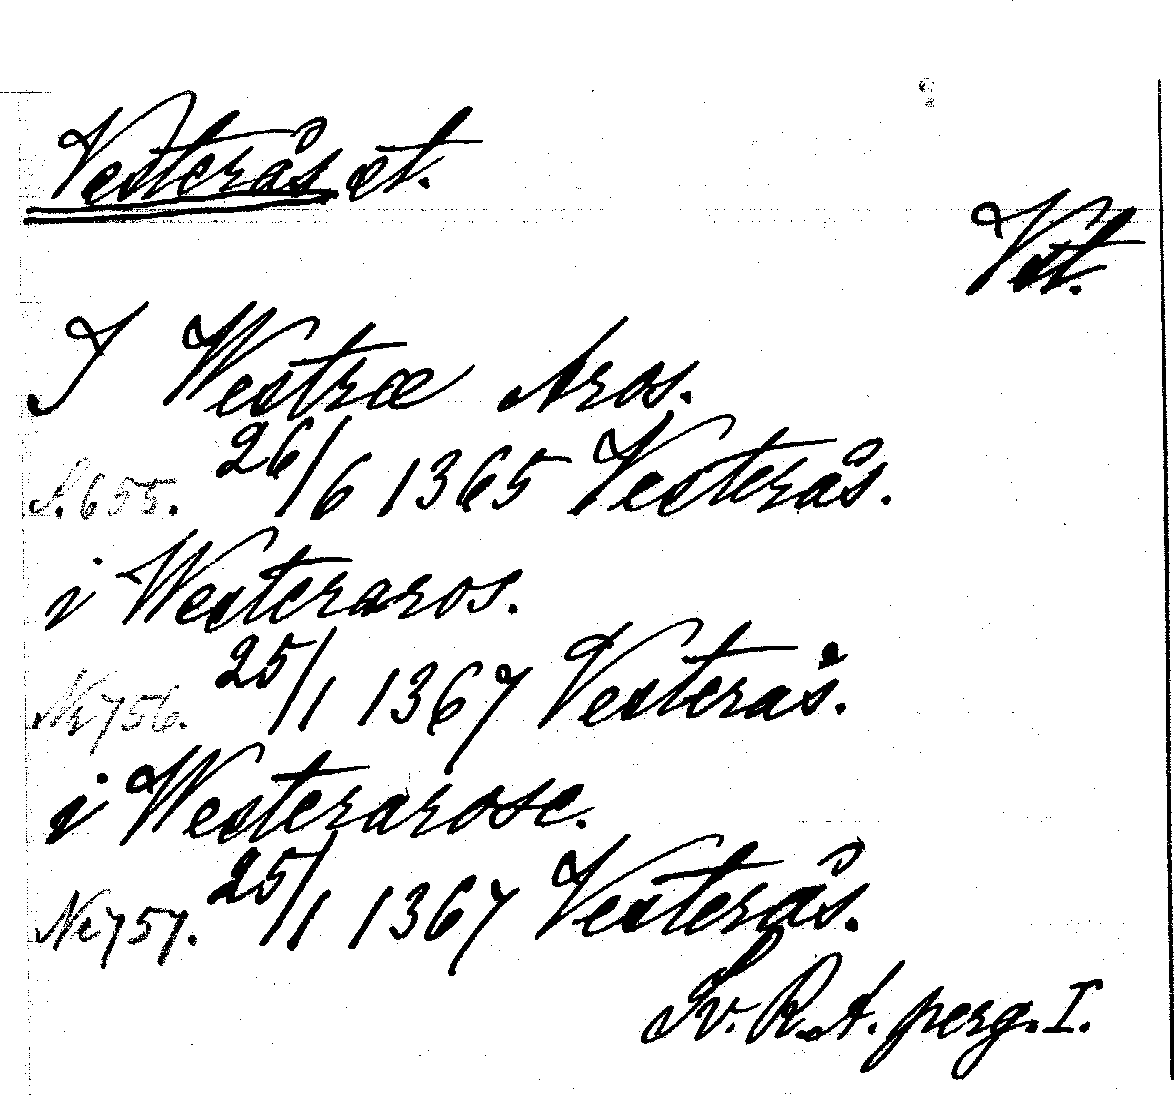 Vesterås st.
Vstl.
I Westræ Aros.
S. 655. 26/6 1365 Vesterås.
i Westeraros.
Nr 756. 25/1 1367 Vesterås.
i Westerarose.
Nr 757. 25/1 1367 Vesterås.
Sv. R. A. perg. I.